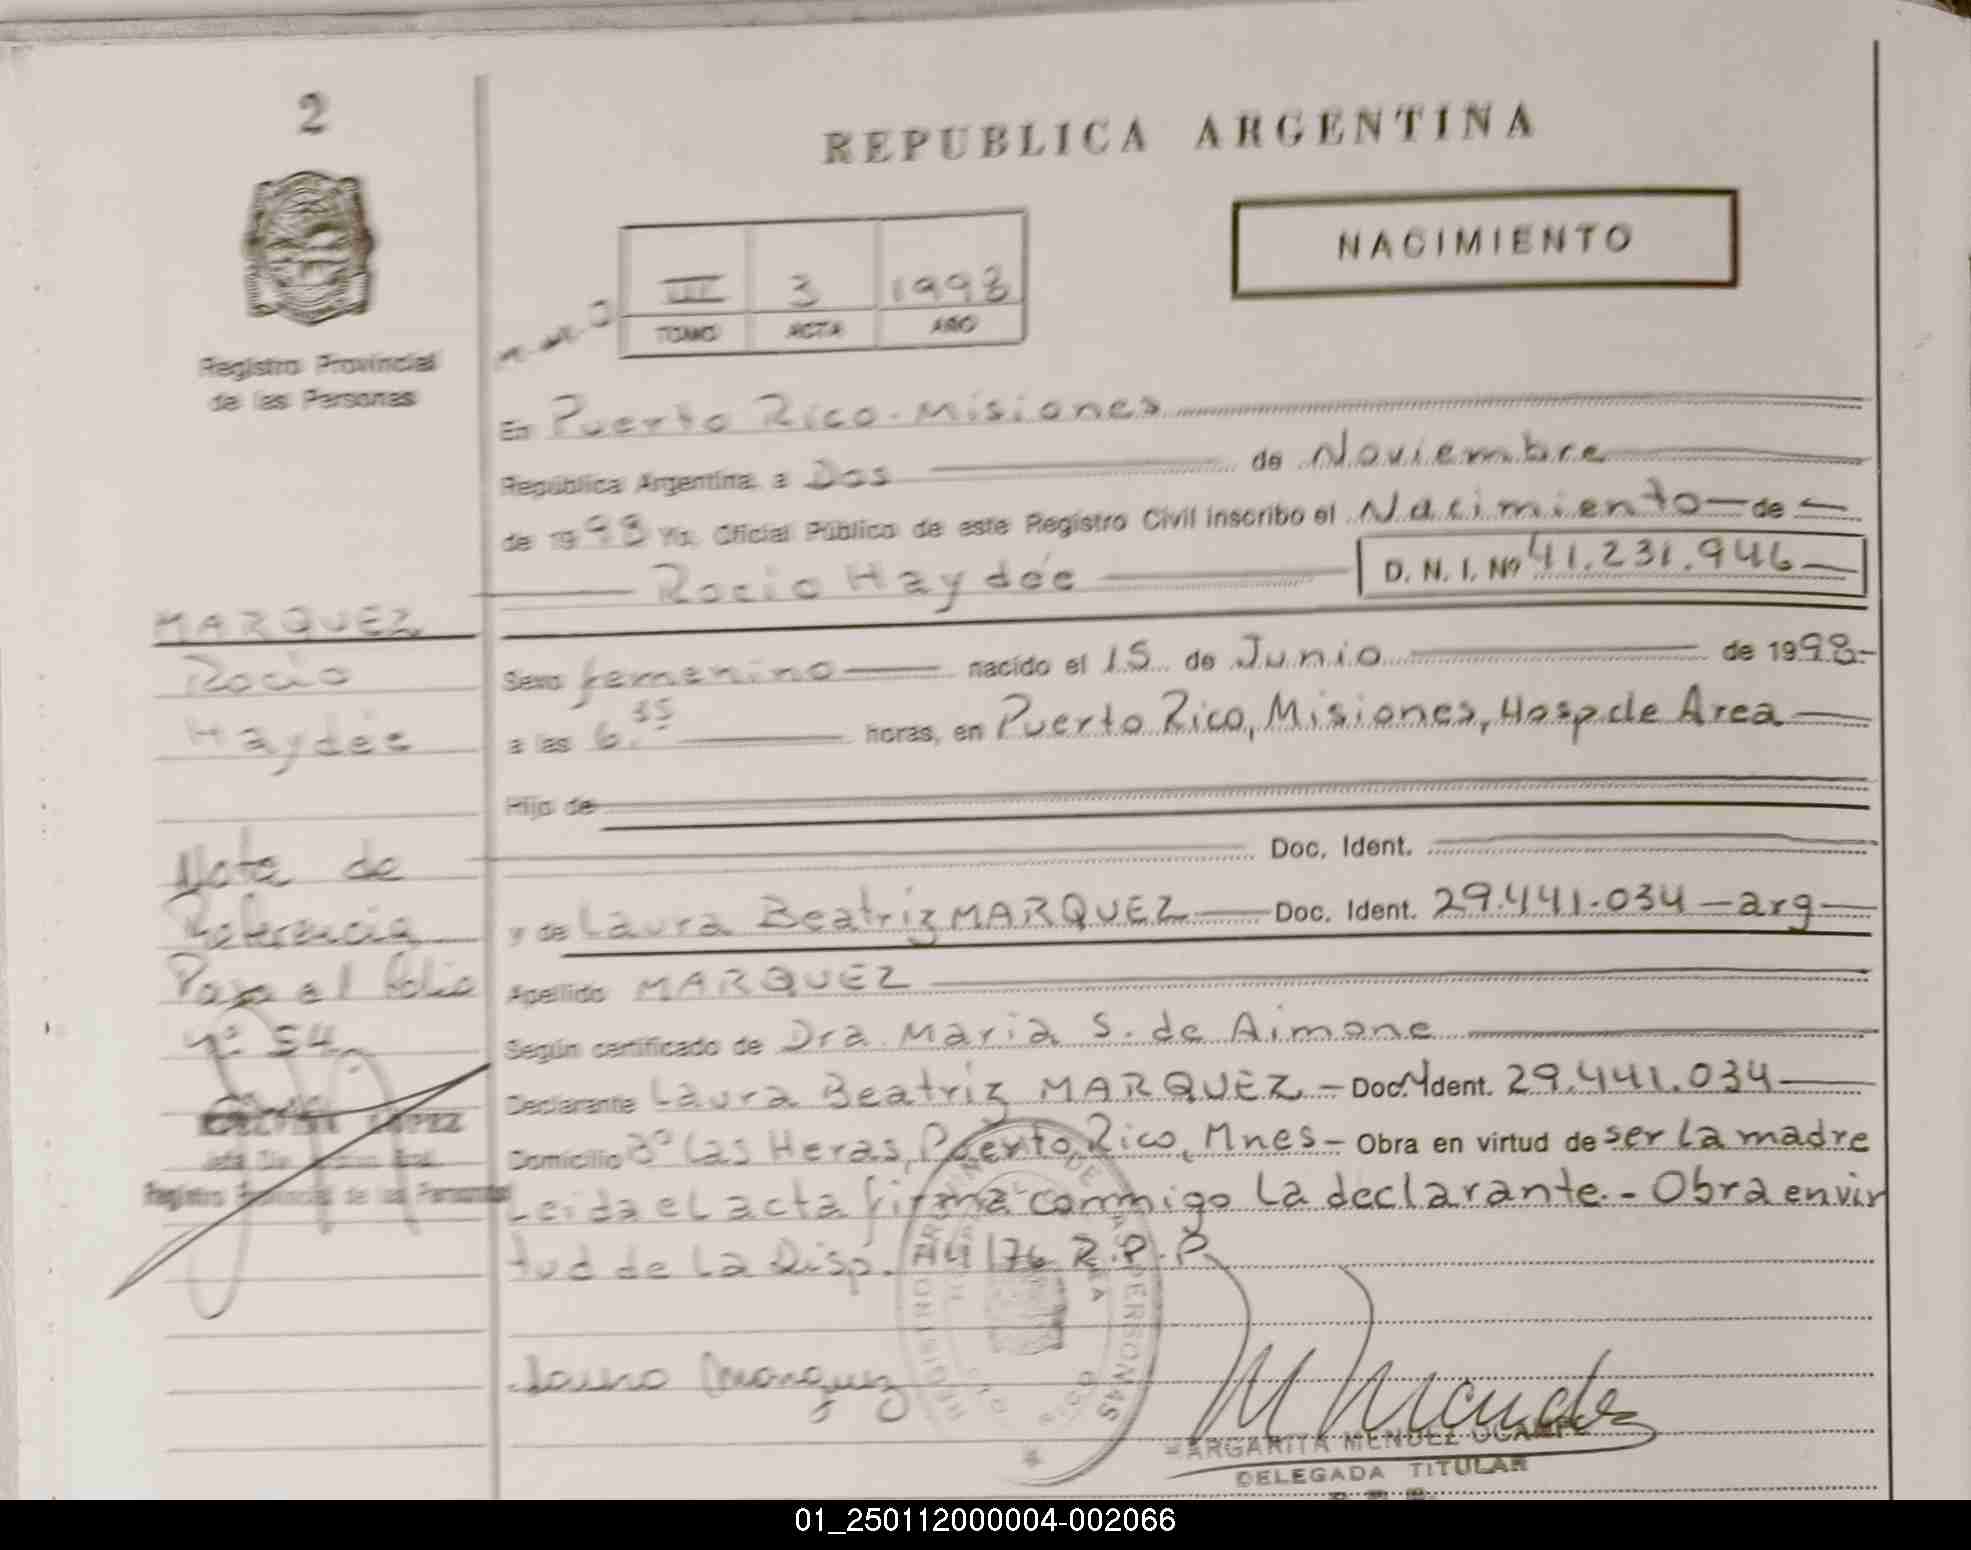 2
REPUBLICA ARGENTINA
NACIMIENTO
III 3 1998
TOMO ACTA AÑO
Registro Provincial
de las Personas
En Puerto Rico - Misiones
República Argentina, a Dos de Noviembre
de 1998 Yo, Oficial Público de este Registro Civil inscribo el Nacimiento de
Rocio Haydée D. N. I. Nº 41.231.946
MARQUEZ
Rocio
Haydée
Sexo femenino nacido el 15 de Junio de 1998-
a las 6.35 horas, en Puerto Rico, Misiones, Hosp de Area
Hijo de
Doc. Ident.
y de Laura Beatriz MARQUEZ Doc. Ident. 29.441.034 - arg
Apellido MARQUEZ
Según certificado de Dra. Maria S. de Aimone
Declarante Laura Beatriz MARQUEZ - Doc. Ident. 29.441.034
Domicilio Bº Las Heras, Puerto Rico, Mnes - Obra en virtud de ser la madre
Leida el acta firma conmigo la declarante. - Obra en vir
tud de la Disp. A4176 R.P.P
Nota de
Referencia
Pasa al folio
nº 54
LOPEZ
Registro Provincial de las Personas
Laura Marquez
M Mendez
MARGARITA MENDEZ OCAMPO
DELEGADA TITULAR
01_250112000004-002066